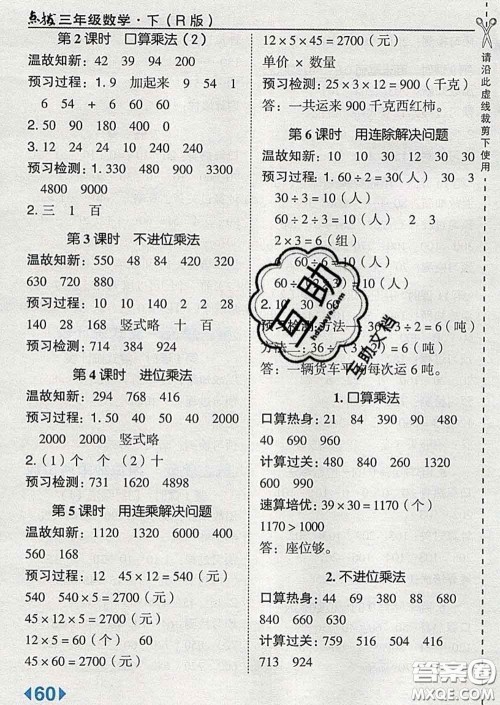 点拨 三年级数学·下(R版)
第2课时 口算乘法(2)
温故知新:42 39 94 200
预习过程:1.9 加起来 9 54 1
6 54 + 6 60 60
2.50 90 180
3.12 24 24 10 240 240
预习检测:1.330 480 900 3300
4800 9000
2.三 1 百
第3课时 不进位乘法
温故知新:550 48 84 420 320
60 680
预习过程:10 10 140 2 2
28 140 168 竖式略 十 百
预习检测:714 924 384
第4课时 进位乘法
温故知新:294 768 416
预习过程:1.50 40 50 40 2000
2000 2000 竖式略
2.(1)个 (2)十
预习检测:731 1620 4898
第5课时 用连乘解决问题
温故知新:1120 1320 6000 400
560 168
预习过程:12 45×12=540(元)
540 540×5=2700(元)
45×12×5=2700(元)
12×5=60(个)
45×60=2700(元)
60
12×5×45=2700(元)
单价 × 数量
预习检测:25×3×12=900(千克)
答:一共运来900千克西红柿。
第6课时 用连除解决问题
温故知新:10 30 340 160
预习过程:1.60÷2=30(人)
30÷3=10(人)
30÷3=10(人) 2 3
2×3=6(组)
60÷6=10(人)
2.10
预习检测:方法一:36÷3÷2=6(吨)
方法二:36÷(3×2)=6(吨)
答:一辆货车平均每次运6吨。
1.口算乘法
口算热身:21 84 390 90 480
40 690 960
计算过关:480 840 660 2420
600 990
速算培优:39×30=1170(个)
1170>1000
答:座位够。
2.不进位乘法
口算热身:44 69 380 88 690
840 660 630
计算过关:759 516 504 416
713 924
请沿此虚线裁剪下使用
互助
互助文档
答案圈
MXQE.COM